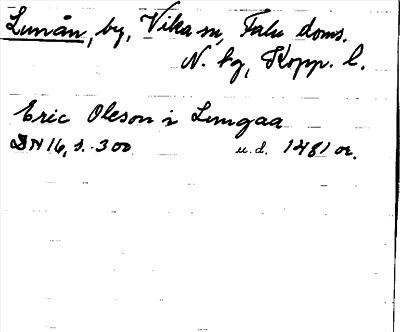 Lunån, by, Vika sn, Falu doms.
N. bg, Kopp. l.
Eric Oleson i Lungaa
DN 16, s. 300 u.d. 1481 or.